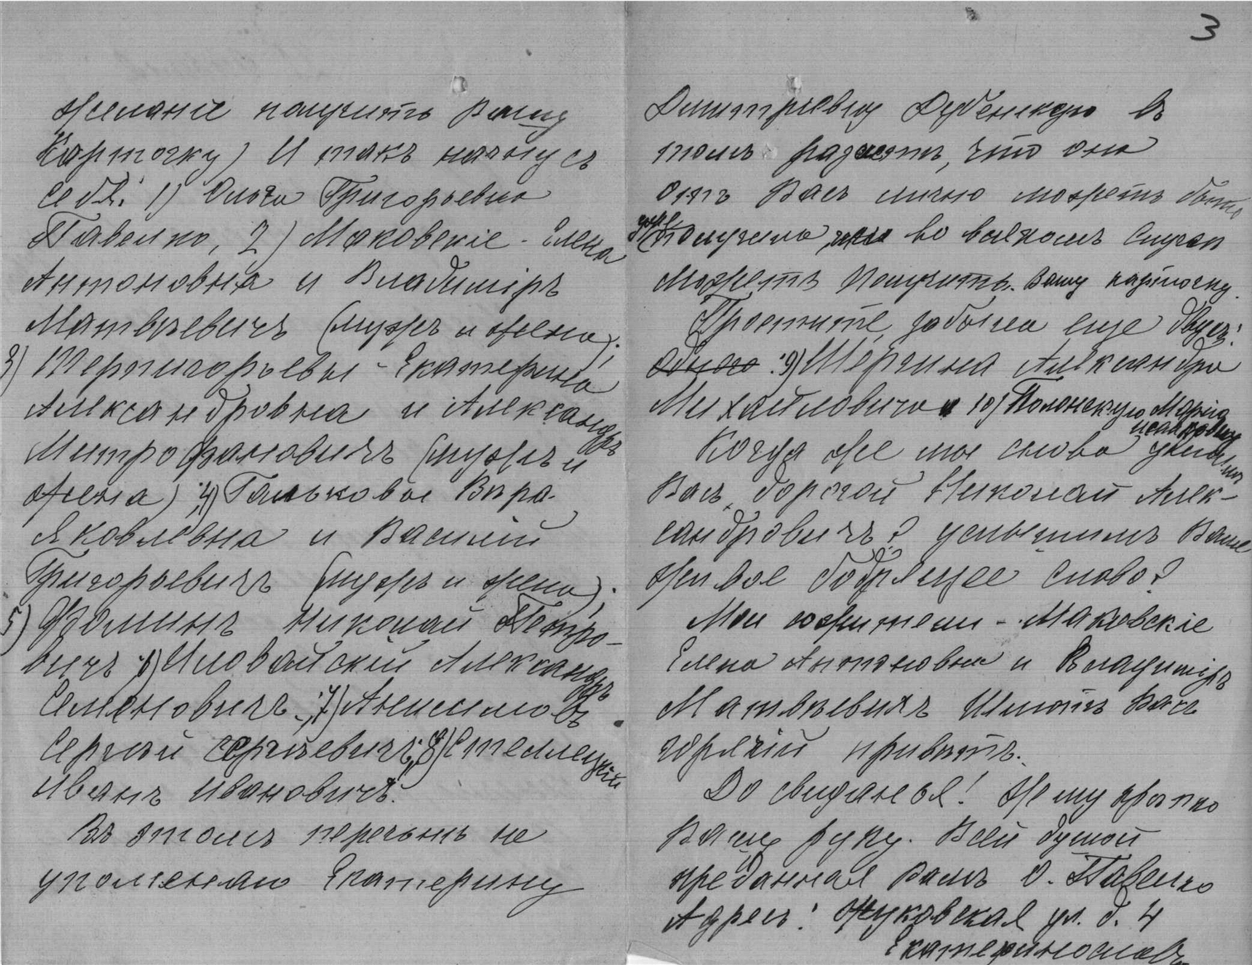 3
желаніе получить Вашу
карточку) И такъ начну съ
себя: 1) Ольга Григорьевна
Павелко, 2) Маковскіе - Елена
Антоновна и Владиміръ
Матвѣевичъ (мужъ и жена);
3) Черпигорьевы - Екатерина
Александровна и Александръ
Митрофановичъ (мужъ и
жена); 4) Галькова Вѣра
Яковлевна и Василій
Григорьевичъ (мужъ и жена);
5) Фоминъ Николай Петро-
вичъ 6) Иловайскій Александръ
Семеновичъ; 7) Анисимовъ
Сергѣй Сергѣевичъ; 8) Стеллецкій
Иванъ Ивановичъ.
Въ этомъ перечнѣ не
упоминаю Екатерину
Дмитріевну Дубенскую въ
томъ, что она
отъ Васъ лично можетъ быть
уже получила или во всякомъ случаѣ
можетъ получить Вашу карточку.
Простите, забыла еще двухъ:
9) Шергина Александра
Михайловича 10) Полонскую Марію
Когда же мы снова увидимъ
Васъ, дорогой Николай Алек-
сандровичъ? услышимъ Ваше
живое бодрящее слово?
Мои сожители - Маковскіе
Елена Антоновна и Владиміръ
Матвѣевичъ шлютъ Вамъ
горячій привѣтъ.
До свиданья! Жму крѣпко
Вашу руку. Всей душой
преданная Вамъ О. Павелко
Адресъ: Жуковская ул. д. 4
Екатеринославъ